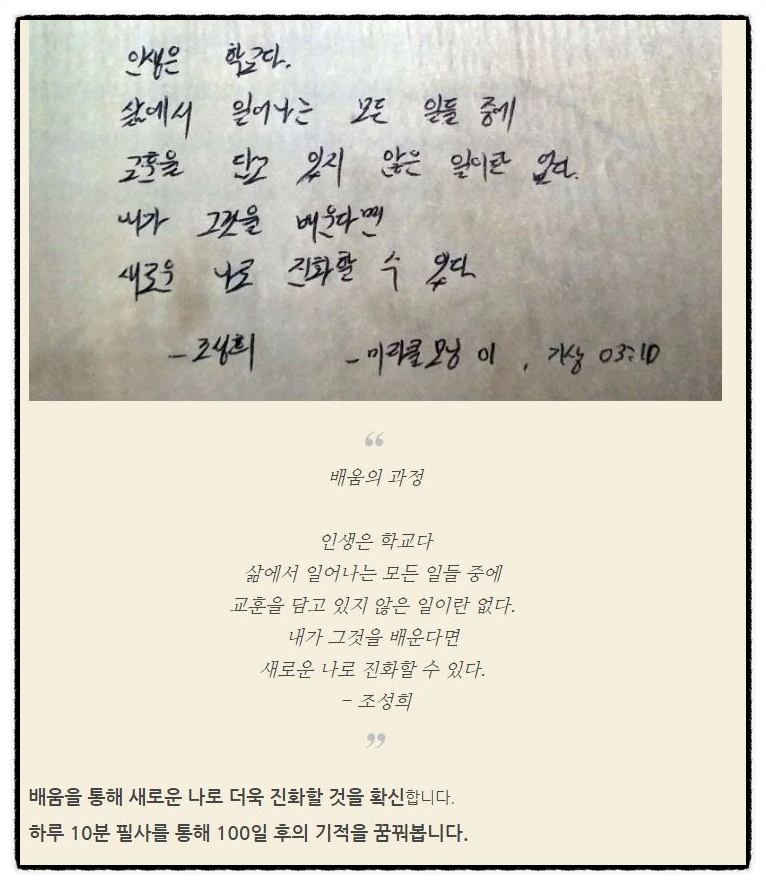 인생은 학교다.
삶에서 일어나는 모든 일들 중에
교훈을 담고 있지 않은 일이란 없다.
내가 그것을 배운다면
새로운 나로 진화할 수 있다.
- 조성희 - 미라클모닝 01, 기상 03:10
“
배움의 과정
인생은 학교다
삶에서 일어나는 모든 일들 중에
교훈을 담고 있지 않은 일이란 없다.
내가 그것을 배운다면
새로운 나로 진화할 수 있다.
- 조성희
”
배움을 통해 새로운 나로 더욱 진화할 것을 확신합니다.
하루 10분 필사를 통해 100일 후의 기적을 꿈꿔봅니다.